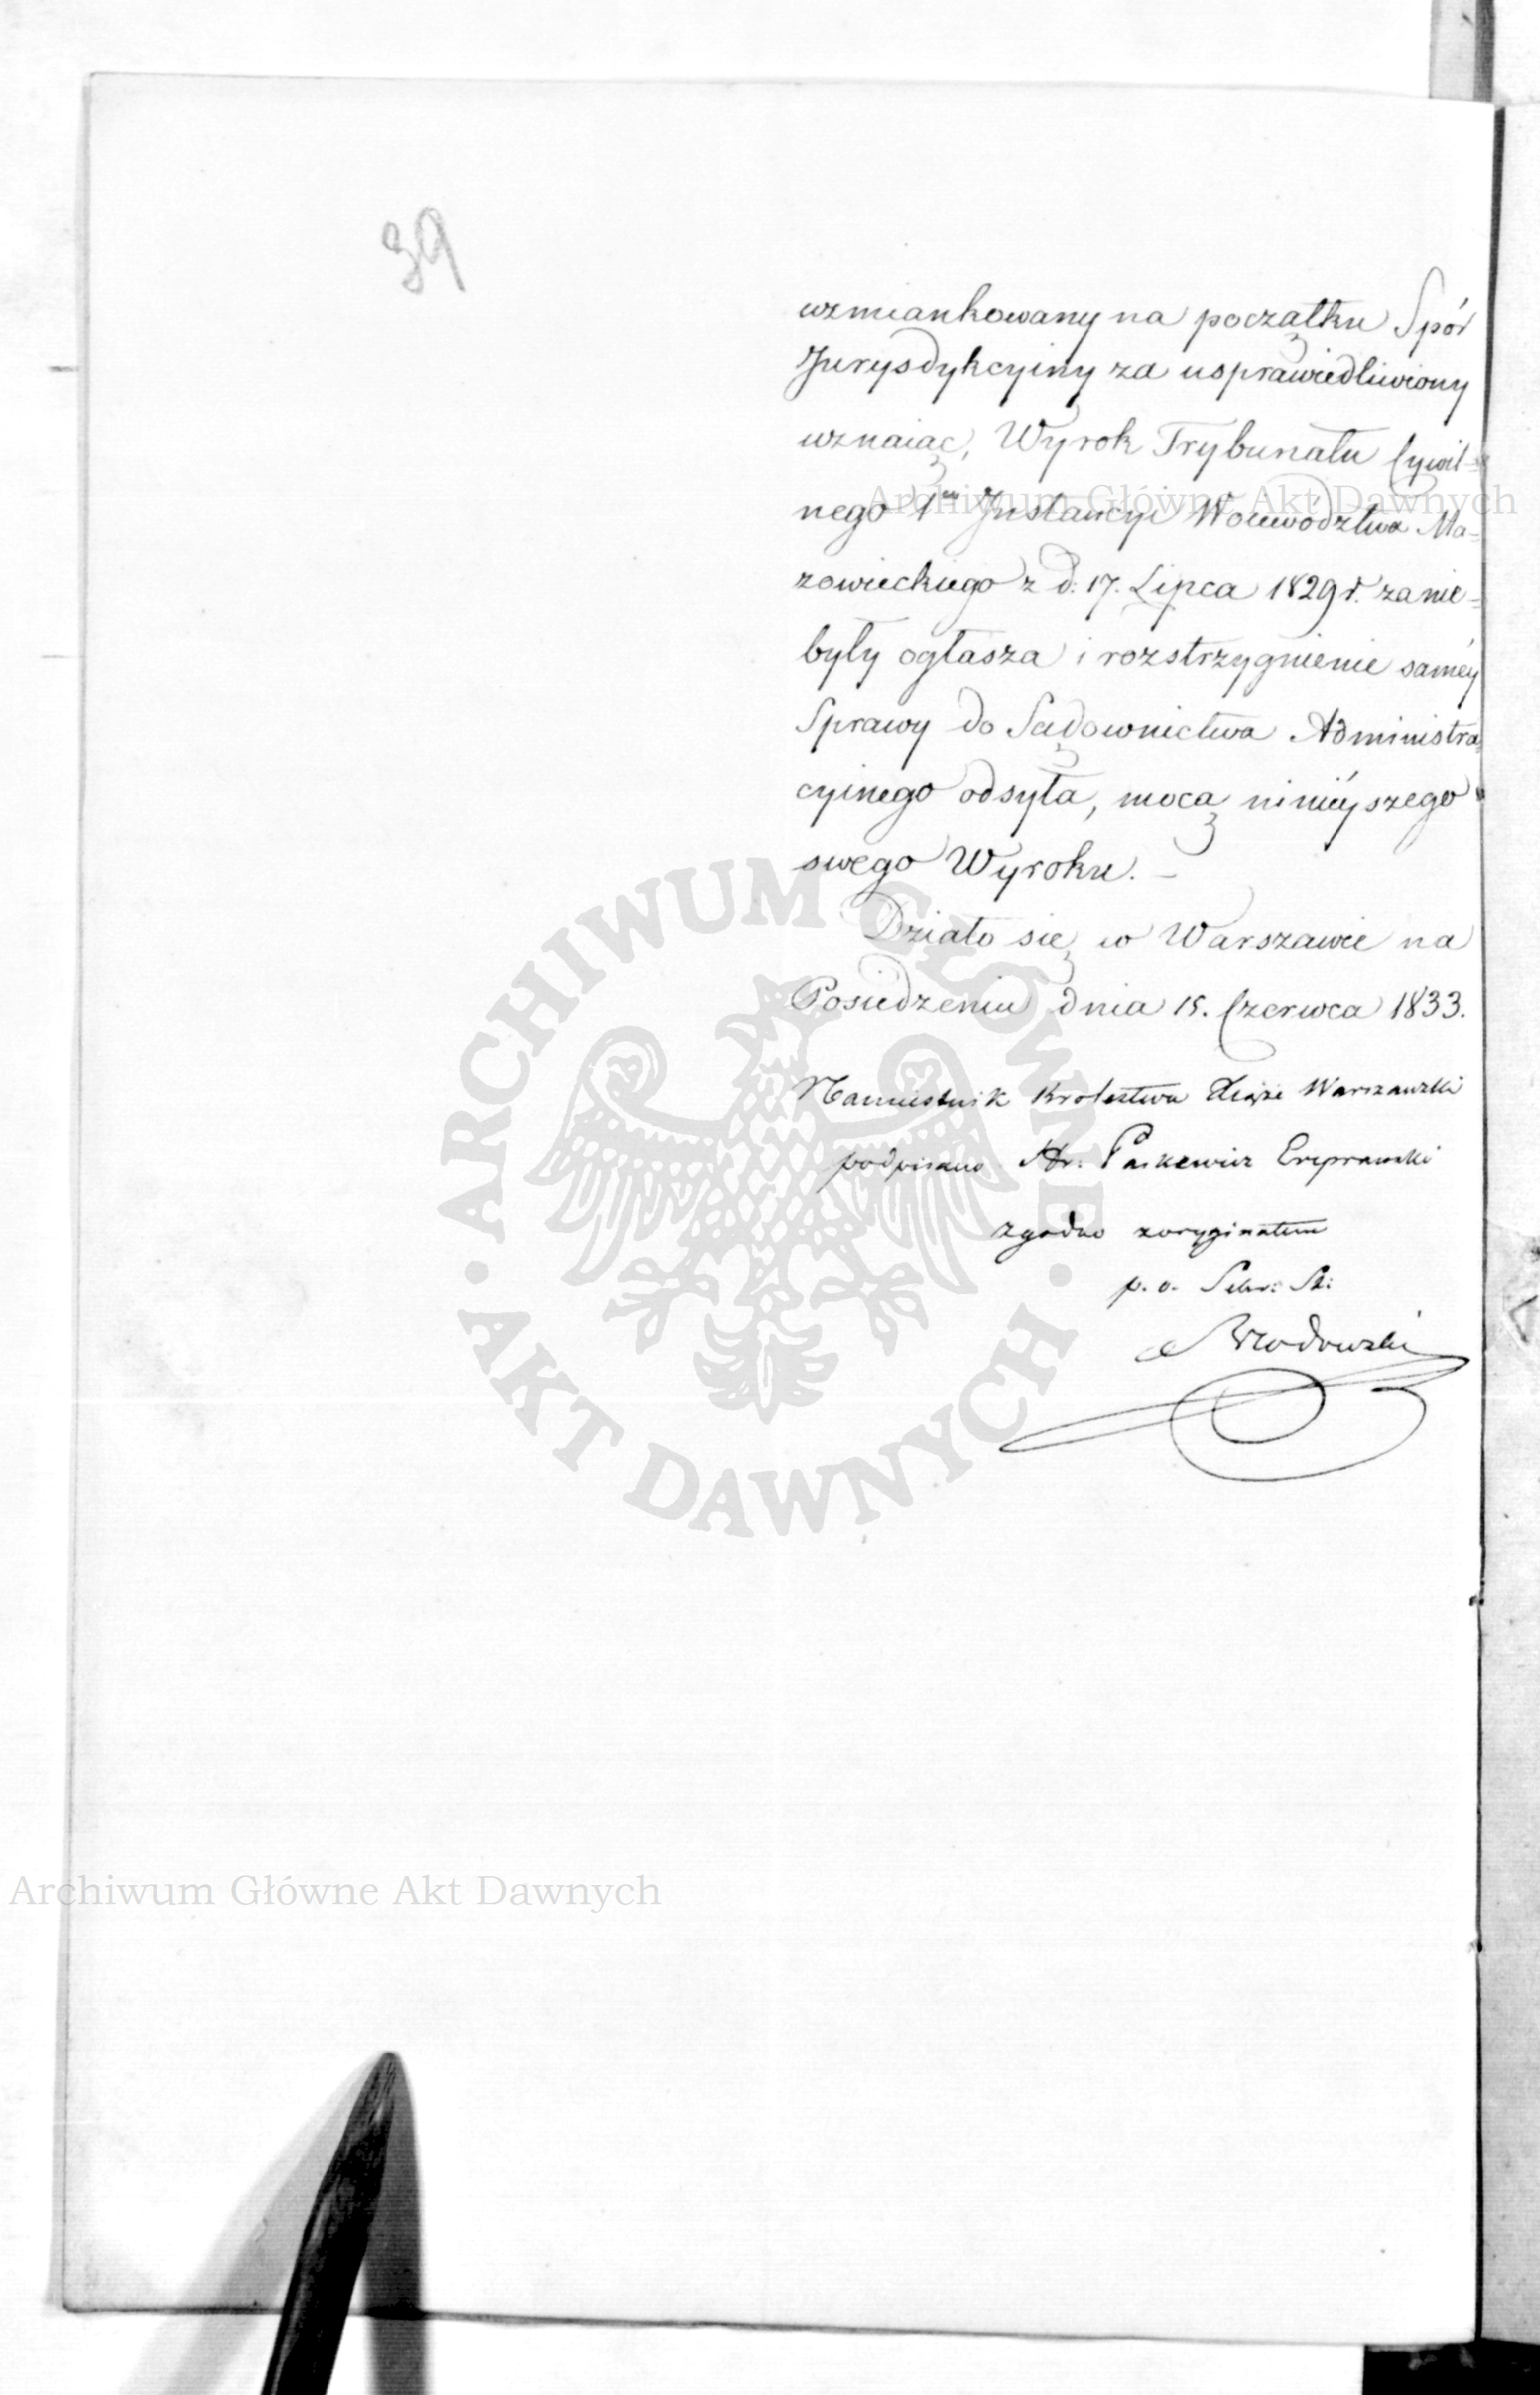 39
wzmiankowany na początku Spór
Jurysdykcyiny za usprawiedliwiony
uznaiąc, Wyrok Trybunału Cywil=
nego 1ey Instancyi Woiewództwa Ma=
zowieckiego z d: 17. Lipca 1829 r. za nie=
były ogłasza i rozstrzygnienie saméy
Sprawy do Sądownictwa Administra=
cyinego odsyła, mocą ninieyszego
swego Wyroku. –
Działo się w Warszawie na
Posiedzeniu dnia 15. Czerwca 1833.
Namiestnik Krolestwa Xiąże Warszawski
podpisano Hr. Paskewicz Erywański
zgodno z oryginałem
p. o. Sekr: St:
Brzodowski
Archiwum Główne Akt Dawnych
ARCHIWUM GŁÓWNE · AKT DAWNYCH ·
Archiwum Główne Akt Dawnych